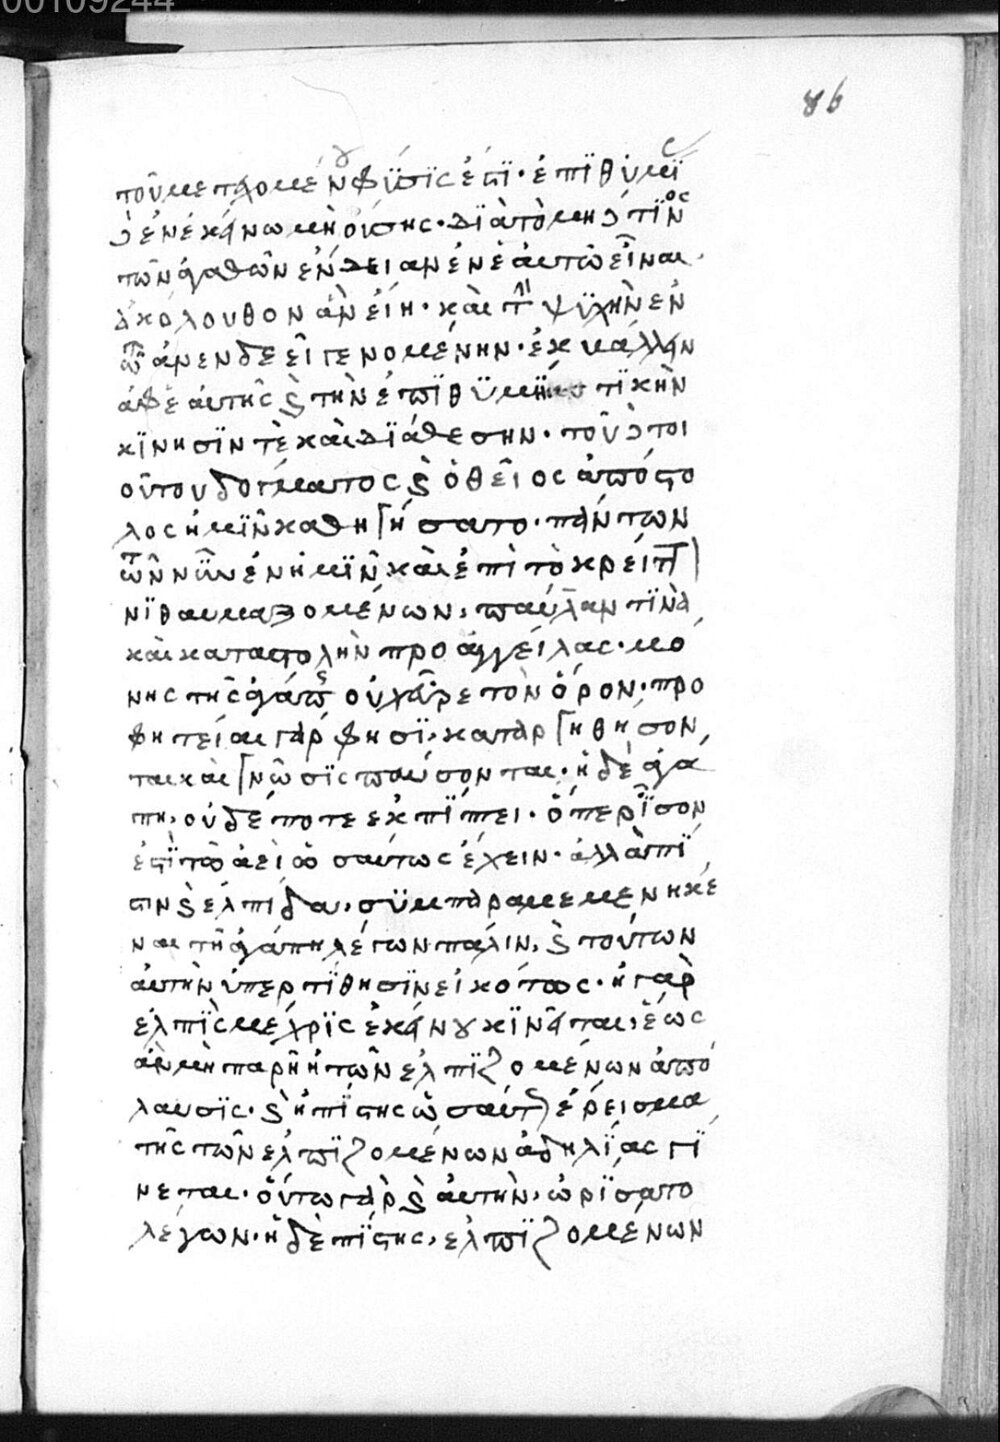 τοῦ φύσις ἐστὶ· ἐπιθυμίας
δὲ ἐν ἐκάνω μὴ οὔσης· διὰ τὸ μηδὲ τινὸς
τῶν ἀγαθῶν ἔνδειαν ἐνὲ ἀυτῶ εἶναι·
ἀκόλουθον ἀν εἴη· καὶ τὴν ψυχὴν ἐν
τῶ ἀνενδεεῖ γενομένην· ἐκβάλλην
ἀφὲ ἀυτῆς καὶ τὴν ἐπιθυμητικὴν
κίνησίν τὲ καὶ διάθεσην· τοῦ δὲ τοι
οῦτου δόγματος καὶ ὁ θεῖος ἀπόστο
λος ἡμῖν καθηγήσατο· πάντων
τῶν νῦν ἐν ἡμῖν καὶ ἐπὶ τὸ κρείττο
νι θαυμαζομένων, παῦλαν τινὰ
καὶ καταστολὴν προαγγείλας· μό
νης τῆς ἀγάπης οὐχ εὗρε τὸν ὅρον· προ
φητείαι γὰρ φησί· καταργηθήσον
ται καὶ γνῶσις παύσονται· ἡ δὲ ἀγά
πη, οὐδέποτε ἐκπίπτει· ὅπερ ἴσον
ἐστὶ τῶ ἀεὶ ὡσαύτως ἔχειν· ἀλλὰ πί
στιν καὶ ἐλπίδα, συμπαραμεμενηκέ
ναι τῆ ἀγάπη λέγων πάλιν, καὶ τούτων
ἀυτὴν ὑπερτίθησιν εἰκότως· ἡ γὰρ
ἐλπὶς μέχρις ἐκάνου κινῆται, ἕως
ἀν μὴ παρῆ ἡ τῶν ἐλπιζομένων ἀπό
λαυσις· καὶ ἡ πίστης ὡσαύτως ἔρεισμα
τῆς τῶν ἐλπιζομένων ἀδηλίας γί
νεται· οὕτω γὰρ καὶ ἀυτὴν, ὡρίσατο
λέγων· ἡ δὲ πίστης, ἐλπιζομένων